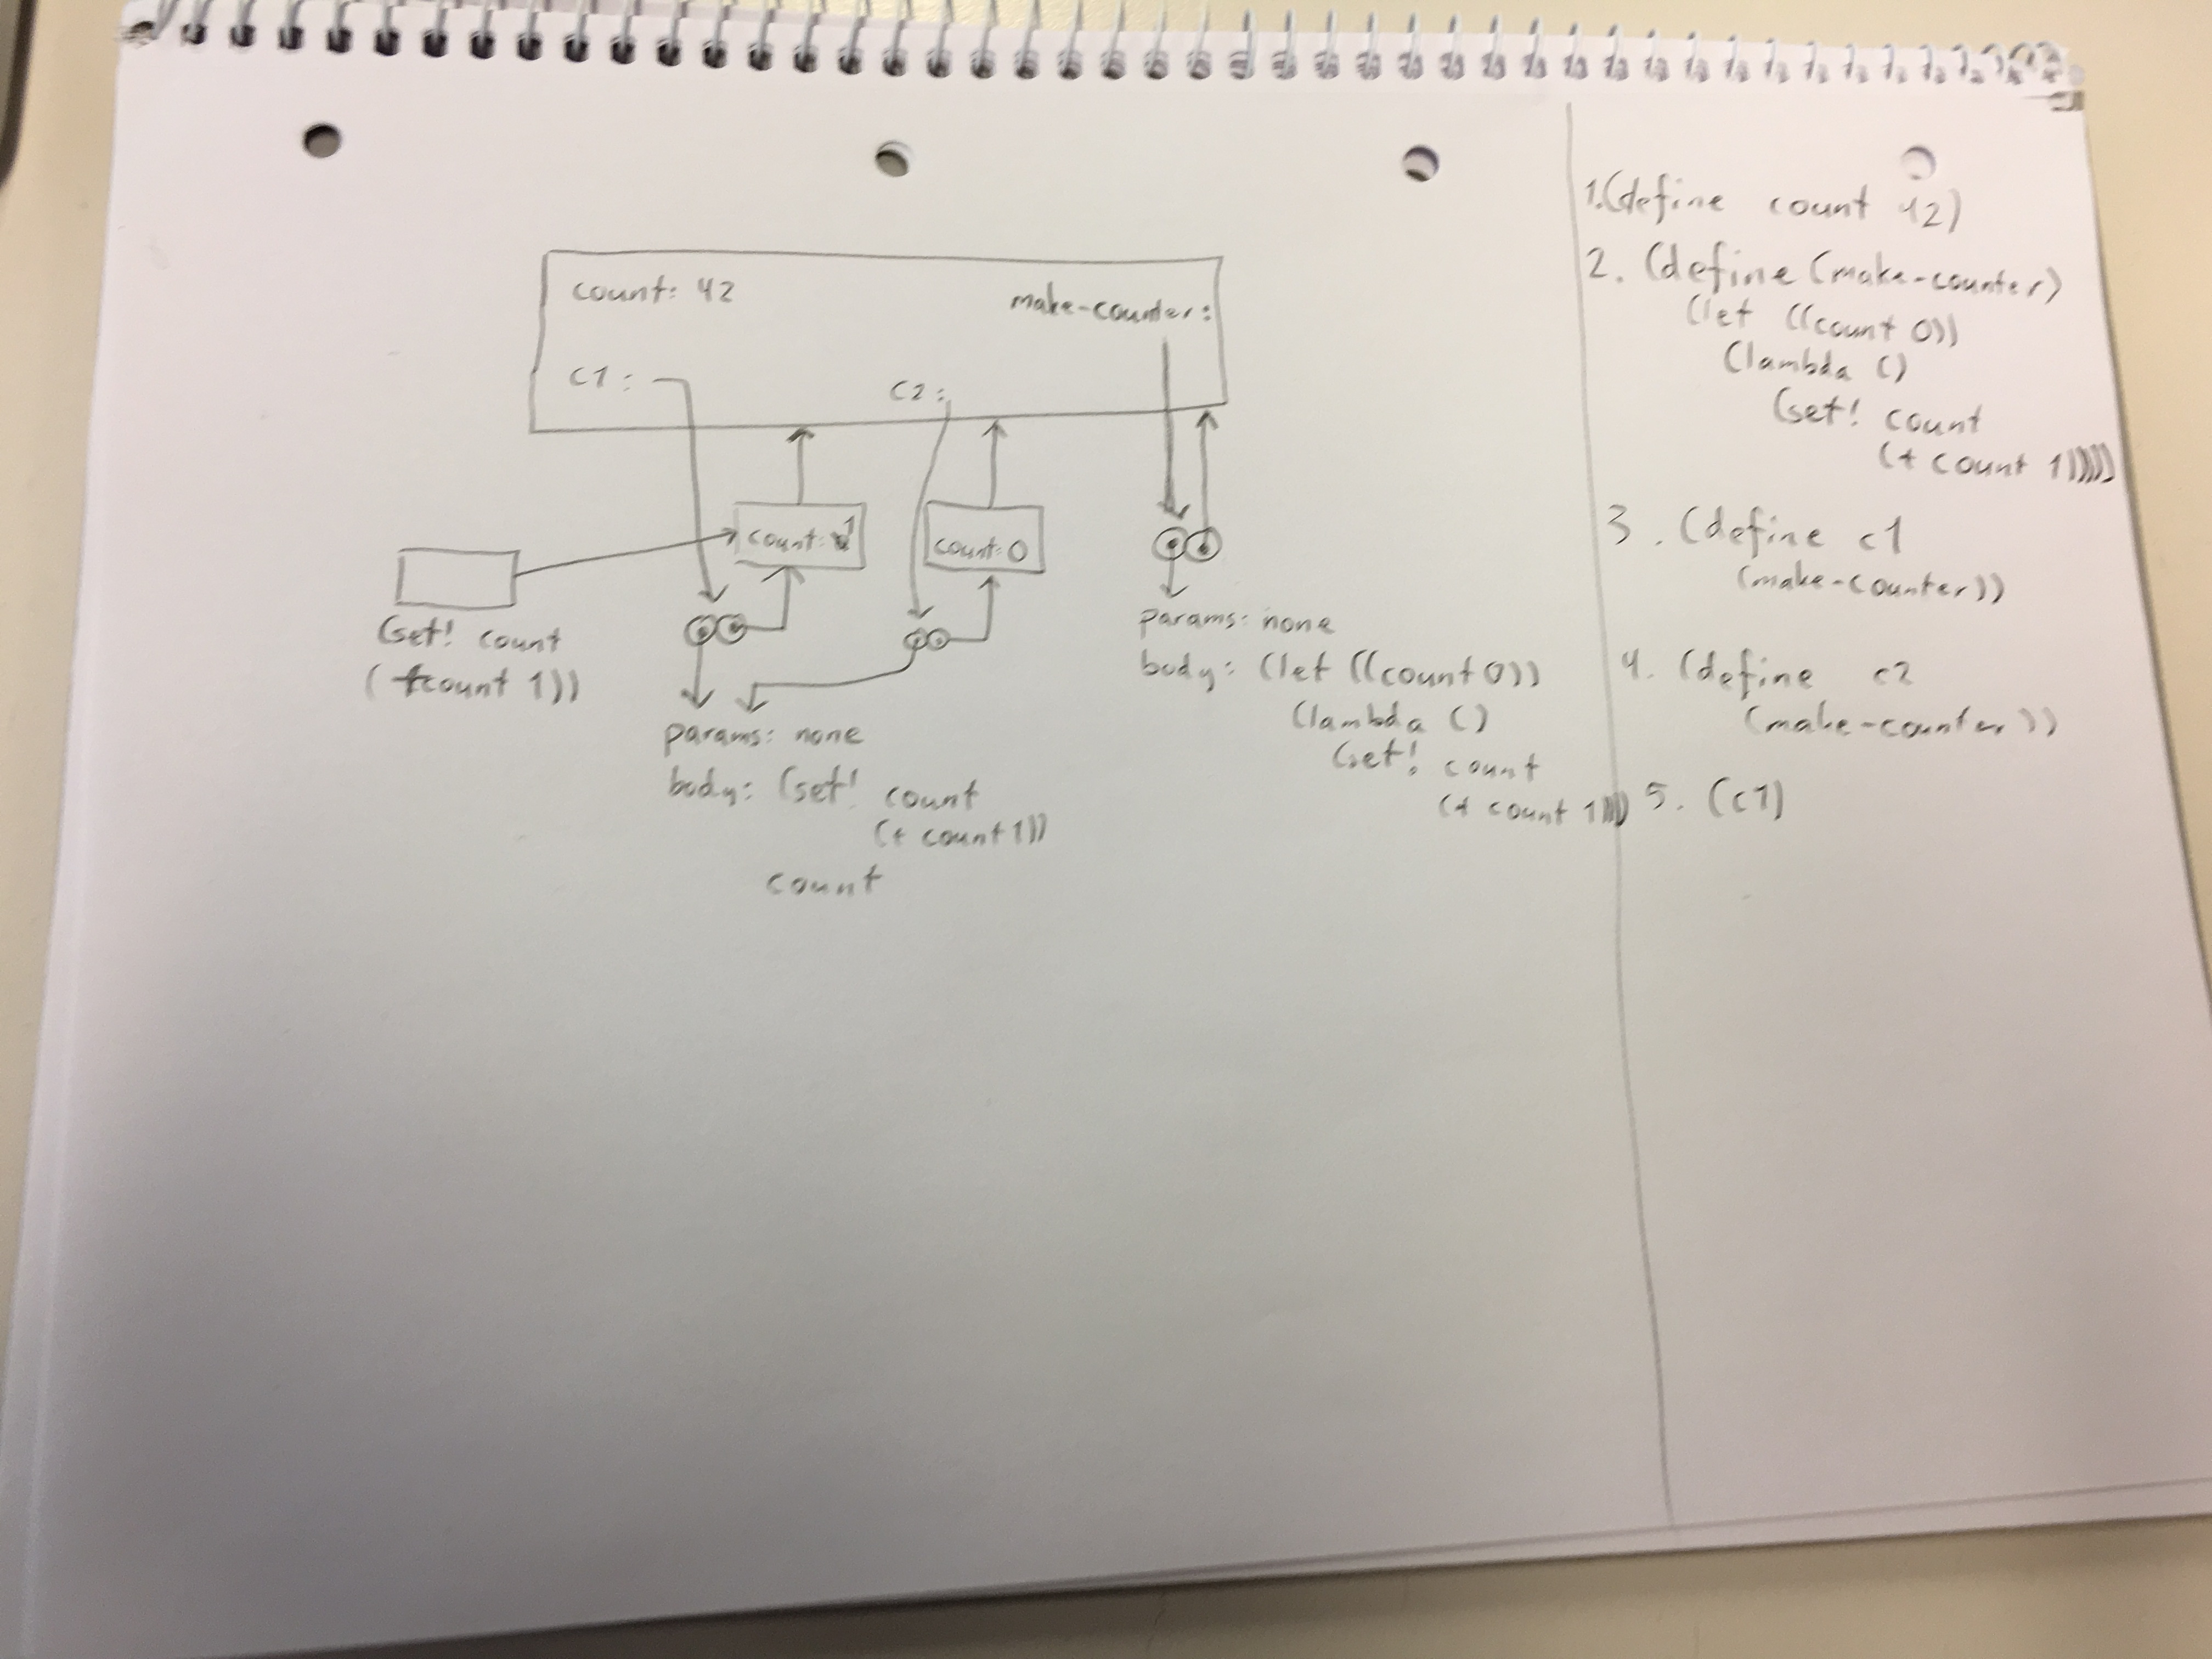 count: 42
make-counter:
c1:
c2:
count: 1
count: 0
(set! count
(+count 1))
params: none
body: (set! count
(+ count 1))
count
params: none
body: (let ((count 0))
(lambda ()
(set! count
(+ count 1))))
1.(define count 42)
2. (define (make-counter)
(let ((count 0))
(lambda ()
(set! count
(+ count 1)))))
3. (define c1
(make-counter))
4. (define c2
(make-counter))
5. (c1)